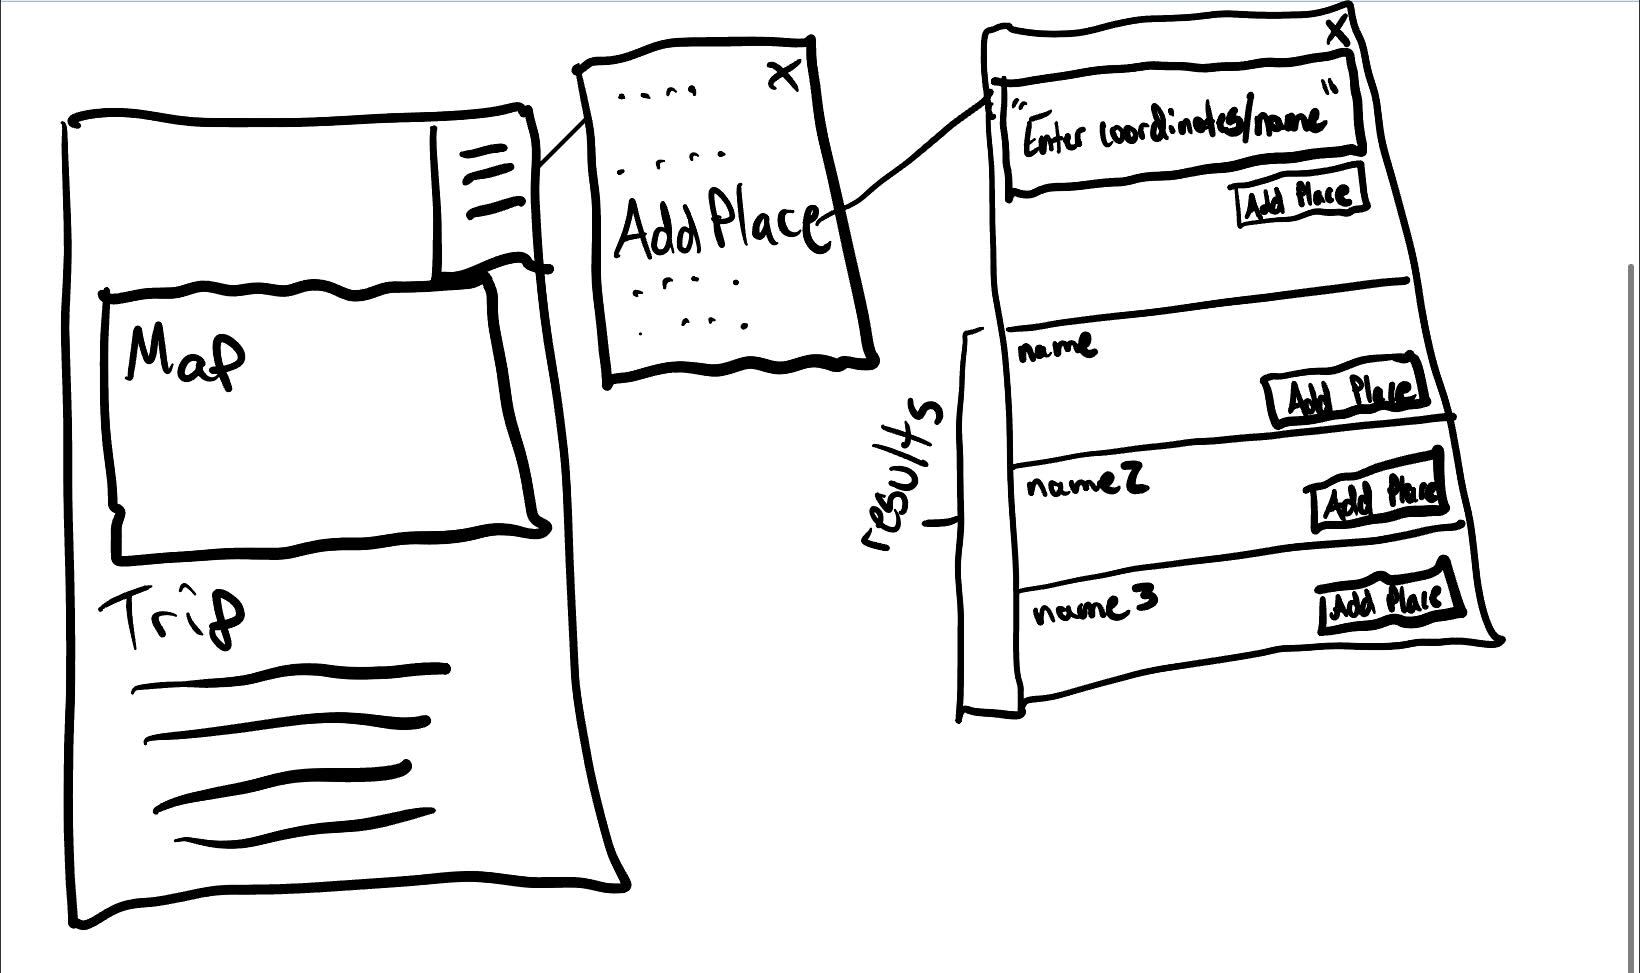 Map
Trip
X
Add Place
X
"Enter coordinates/name"
Add Place
results
name
Add Place
name2
Add Place
name3
Add Place